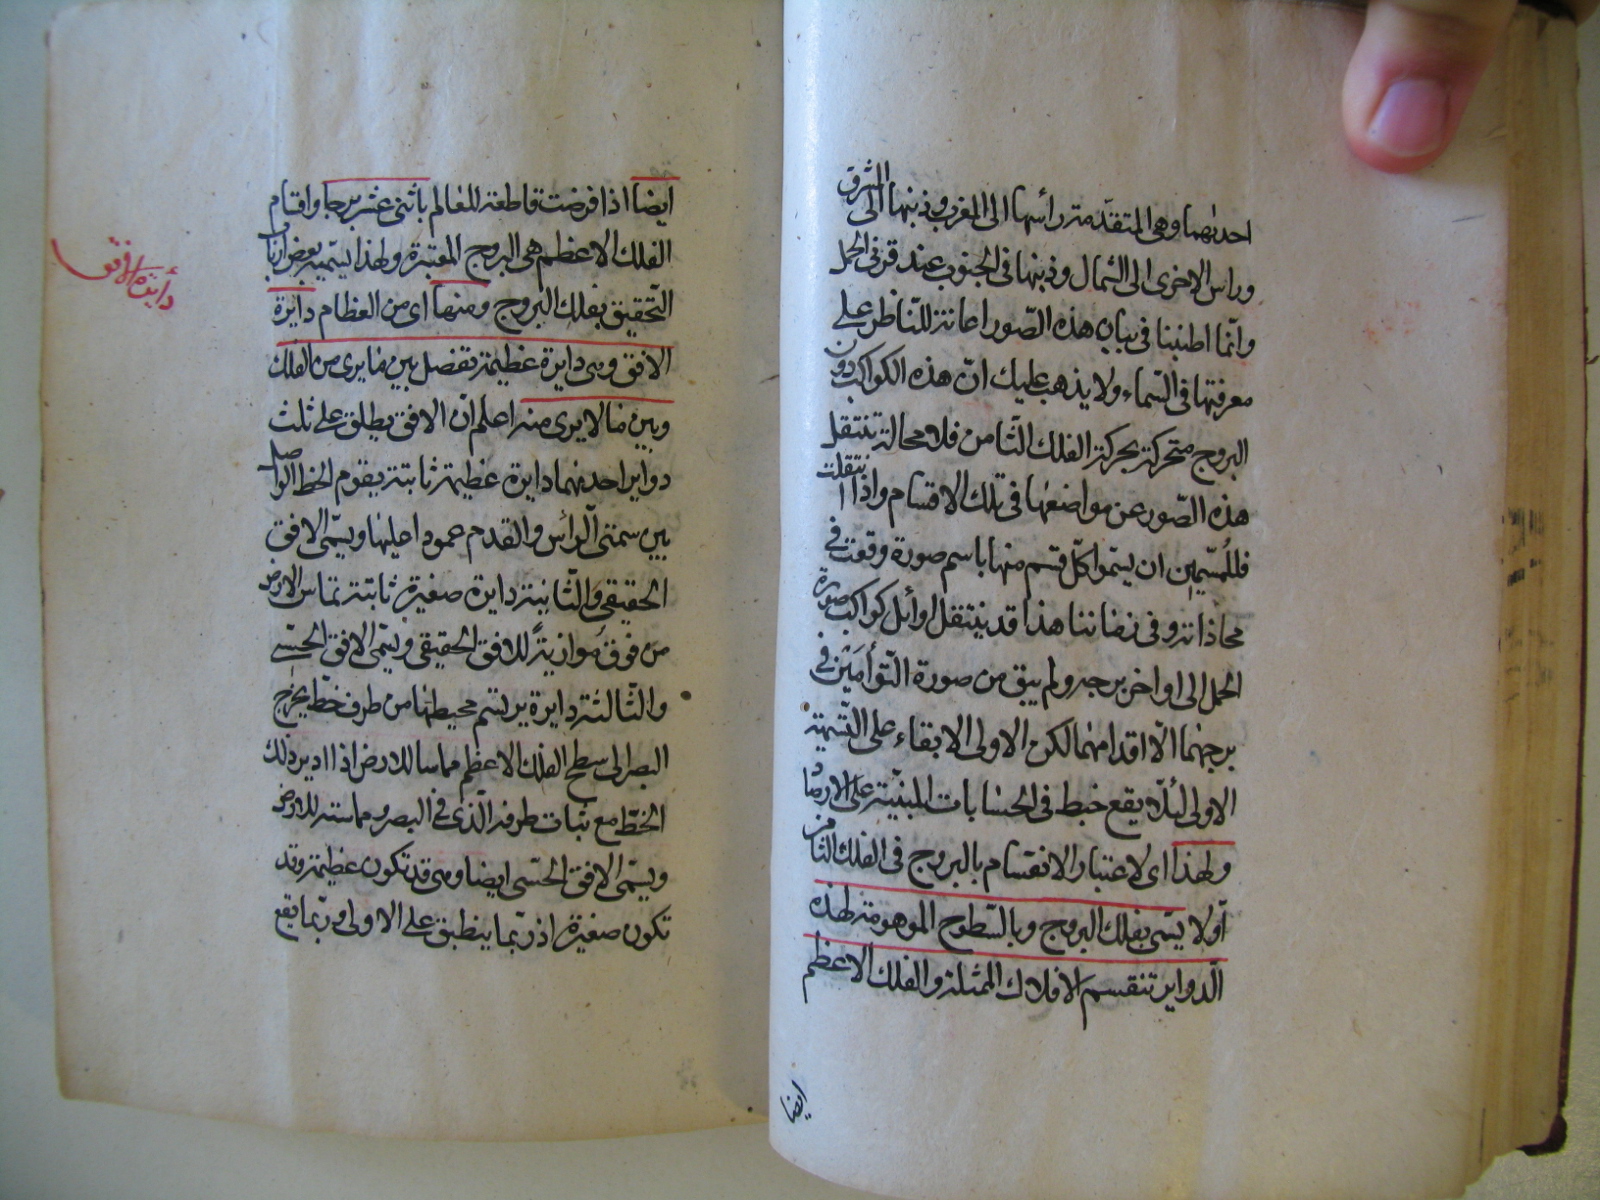 احديهما وهى المتقدمة رأسها الى المغرب وذنبها الى الشرق
وراس الاخرى الى الشمال وذنبها فى الجنوب عند قرنى الحمل
وانما اطنبنا فى بيان هذه الصور اعانة للناظر على
معرفتها فى السماء ولا يذهب عليك ان هذه الكواكب دون
البروج متحركة بحركة الفلك الثامن فلا محالة تنتقل
هذه الصور عن مواضعها فى تلك الاقسام واذا انتقلت
فللمسمين ان يسموا كل قسم منها باسم صورة وقعت فى
محاذاته وفى زماننا هذا قد ينتقل اوائل كواكب صورة
الحمل الى اواخر برجه ولم يبق من صورة التوأمين فى
برجهما الا اقدامهما لكن الاولى الابقاء على التسمية
الاولى لئلا يقع خبط فى الحسابات المبنية على الارصاد
ولهذا اى لاعتبار الانقسام بالبروج فى الفلك الثامن
اولا يسمى بفلك البروج وبالسطوح الموهومة لهذه
الدواير تنقسم الافلاك الممثلة والفلك الاعظم
ايضا
ايضا اذا فرضت قاطعة للعالم باثنى عشر برجا واقسام
الفلك الاعظم هى البروج المعتبرة ولهذا يسميه بعض ارباب
التحقيق بفلك البروج ومنها اى من العظام دايرة
الافق وهى دايرة عظيمة تفصل بين ما يرى من الفلك
وبين ما لا يرى منه اعلم ان الافق يطلق على ثلث
دواير احديهما دايرة عظيمة ثابتة يقوم الخط الواصل
بين سمتى الرأس والقدم عمودا عليها ويسمى الافق
الحقيقى والثانية دايرة صغيرة ثابتة تماس الارض
من فوق موازية للافق الحقيقى ويسمى الافق الحسى
والثالثة دايرة يرتسم محيطها من طرف خط يخرج
البصر الى سطح الفلك الاعظم مماسا للارض اذا ادير ذلك
الخط مع ثبات طرفه الذى فى البصر ومماسته للارض
ويسمى الافق الحسى ايضا وهى قد تكون عظيمة وقد
تكون صغيرة اذ ربما ينطبق على الاولى وربما يقع
دايرة الافق